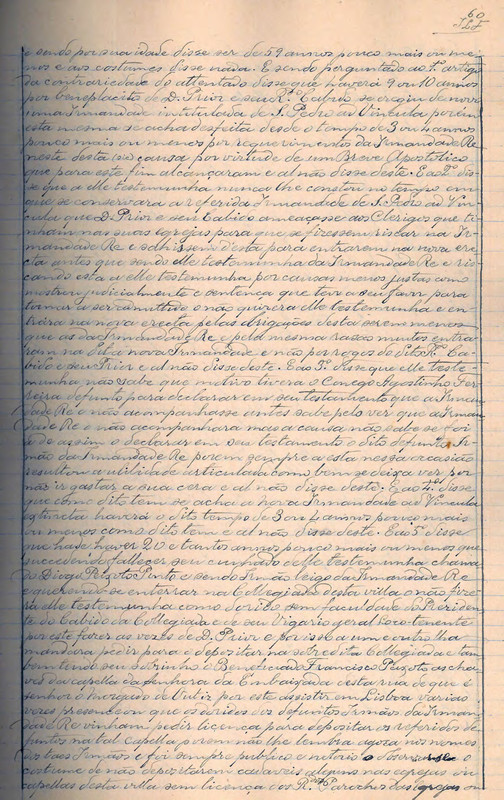 60
e sendo por sua idade disse ser de 59 annos pouco mais ou me-
nos e aos costumes disse nada. E sendo perguntado ao 1º artigo
da contrariedade do attentado disse que haverá 9 ou 10 annos
por beneplacito de D. Prior e seu Rº Cabido se eregiu de novo
uma Irmandade intitulada de S. Pedro ad Vincula porém
esta mesma se acha desfeita desde o tempo de 3 ou 4 annos
pouco mais ou menos por requerimentos da Irmandade Re
neste desta (sic) causa por virtude de um Breve Apostolico
que para este fim alcançaram e al não disse deste. E ao 2º dis-
se que a elle testemunha nunca lhe constou no tempo em
que se conservara a referida Irmandade de S. Pedro ad Vin-
cula que D. Prior e seu Cabido ameaçasse aos Clerigos que te-
nham nas suas egrejas para que se fizessem riscar na Ir-
mandade Re e sahissem desta para entrarem na nova ere-
cta antes que sendo elle testemunha da Irmandade Re e ris-
cando esta a elle testemunha por causas menos justas como
mostrou judicialmente e sentença que teve a seu favor para
tornar a ser admittido o não quizera elle testemunha e en-
trara na nova erecta pelas obrigações desta serem menos
que as da Irmandade Re e pela mesma rasão muitos entra-
ram na dita nova Irmandade e não por rogos do dito Rº Ca-
bido e seu Prior e al não disse deste. E ao 3º disse que elle teste-
munha não sabe que motivo tivera o Conego Agostinho Fer-
reira defunto para declarar em seu testamento que a Irman-
dade Re o não acompanhasse antes sabe pelo ver que a Irman-
dade Re o não acompanhara mas a causa não sabe se foi
a de assim o declarar em seu testamento o dito defunto Ir-
mão da Irmandade Re porem sempre a esta nessa occasião
resultou a utilidade articulada como bem se deixa ver por
não ir gastar a sua cera e al não disse deste. E ao 4º disse
que como dito tem se acha a nova Irmandade ad Vincula
extincta haverá o dito tempo de 3 ou 4 annos pouco mais
ou menos como dito tem e al não disse deste. E ao 5º disse
que ha de haver 20 e tantos annos pouco mais ou menos que
succedendo fallecer seu cunhado d'elle testemunha chama-
do Diogo Peixoto Pinto e sendo Irmão leigo da Irmandade Re
e querendo-se enterrar na Collegiada desta villa o não fize-
ra elle testemunha como dorido sem faculdade do Presiden-
te do Cabido da Collegiada e de seu Vigario geral loco-tenente
por este fazer as vezes de D. Prior e por isso a um e outro lha
mandara pedir para o depositar na sobredita Collegiada e tam-
bem tendo seu sobrinho o Beneficiado Francisco Peixoto as cha-
ves da capella da Senhora da Embaixada desta rua de que é
senhor o morgado de por este assistir em Lisboa varias
vezes presenceou que os doridos dos defuntos Irmãos da Irman-
dade Re vinham pedir licença para depositar os referidos de-
funtos na tal capella porem não lhe lembra agora nos nomes
dos taes Irmãos e foi sempre publico e notorio o
costume de não depositarem cadaveis alguns nas egrejas ou
capellas desta villa sem licença dos R.dos Parochos das egrejas ou